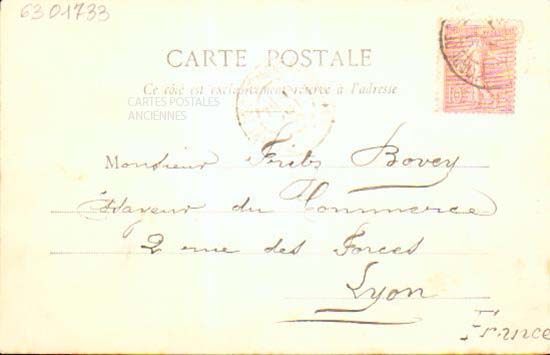 6301733
CARTE POSTALE
Ce côté est exclusivement réservé à l'adresse
CARTES POSTALES
ANCIENNES
Monsieur Frits Bovey
du Commerce
2 rue des Forces
Lyon
France